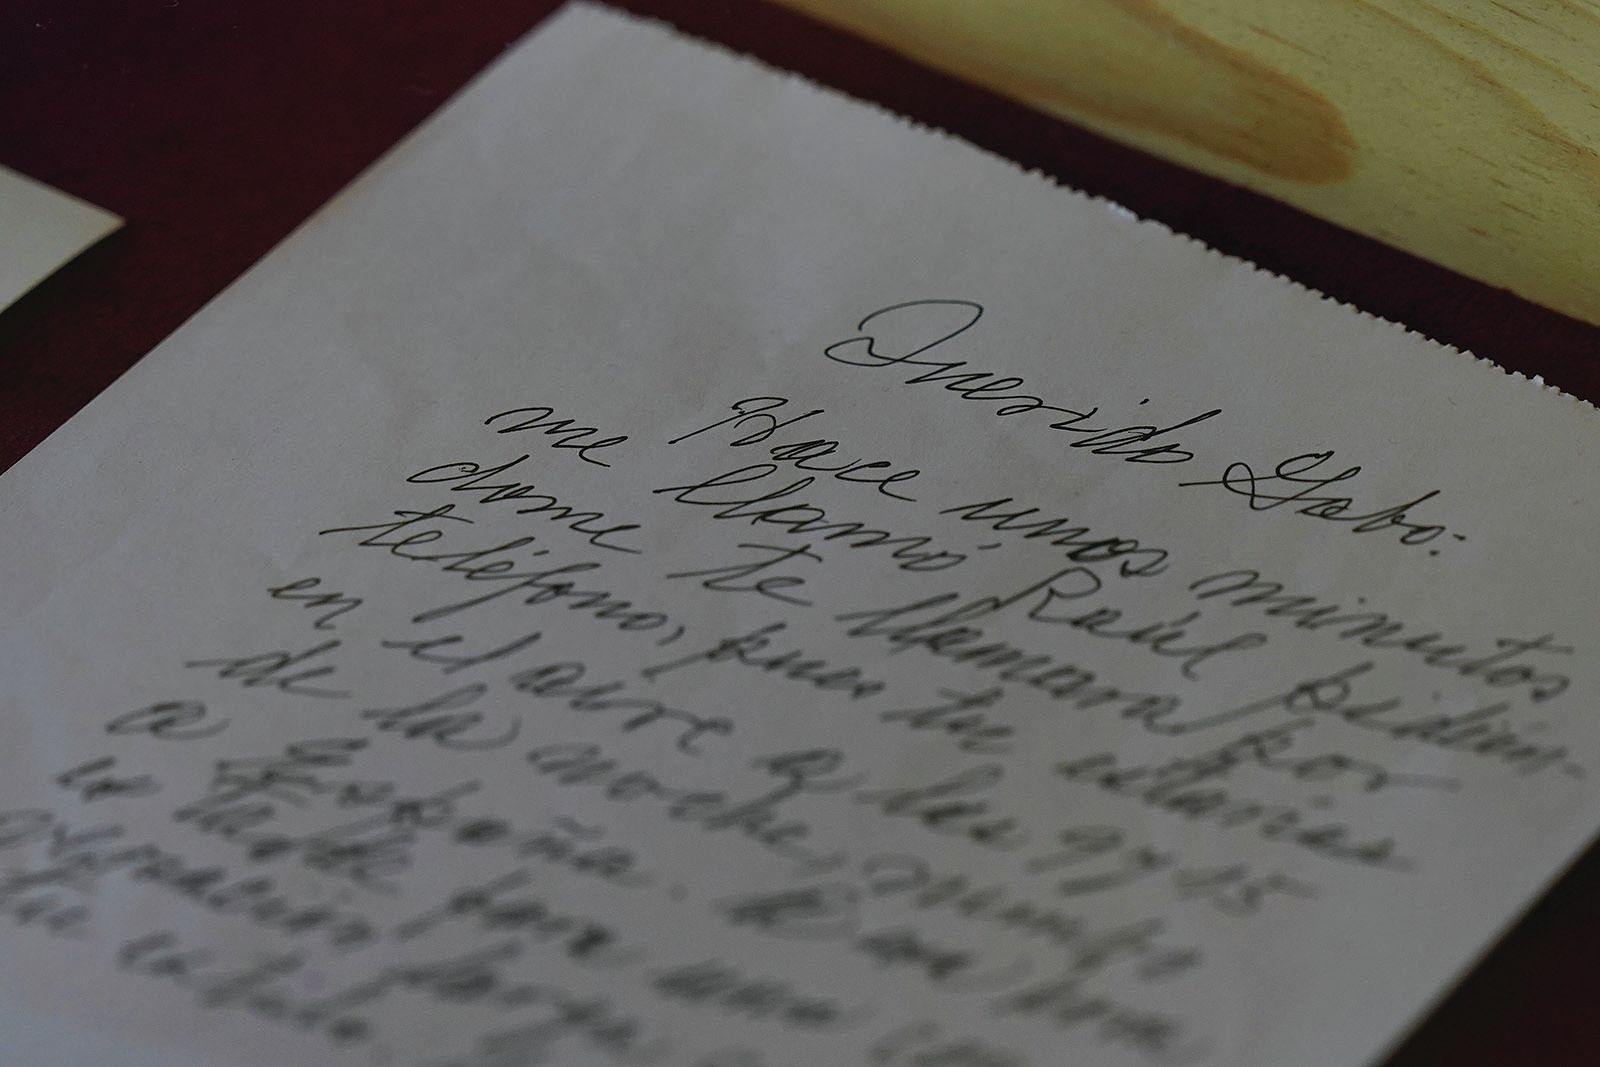 Querido Gabo:
Hace unos minutos
me llamó Raúl pidién-
dome te llamara por
teléfono, pues tu estarías
en el aire a las 9 y 15
de la noche, rumbo
a España. A esa hora
es tarde para una
larga